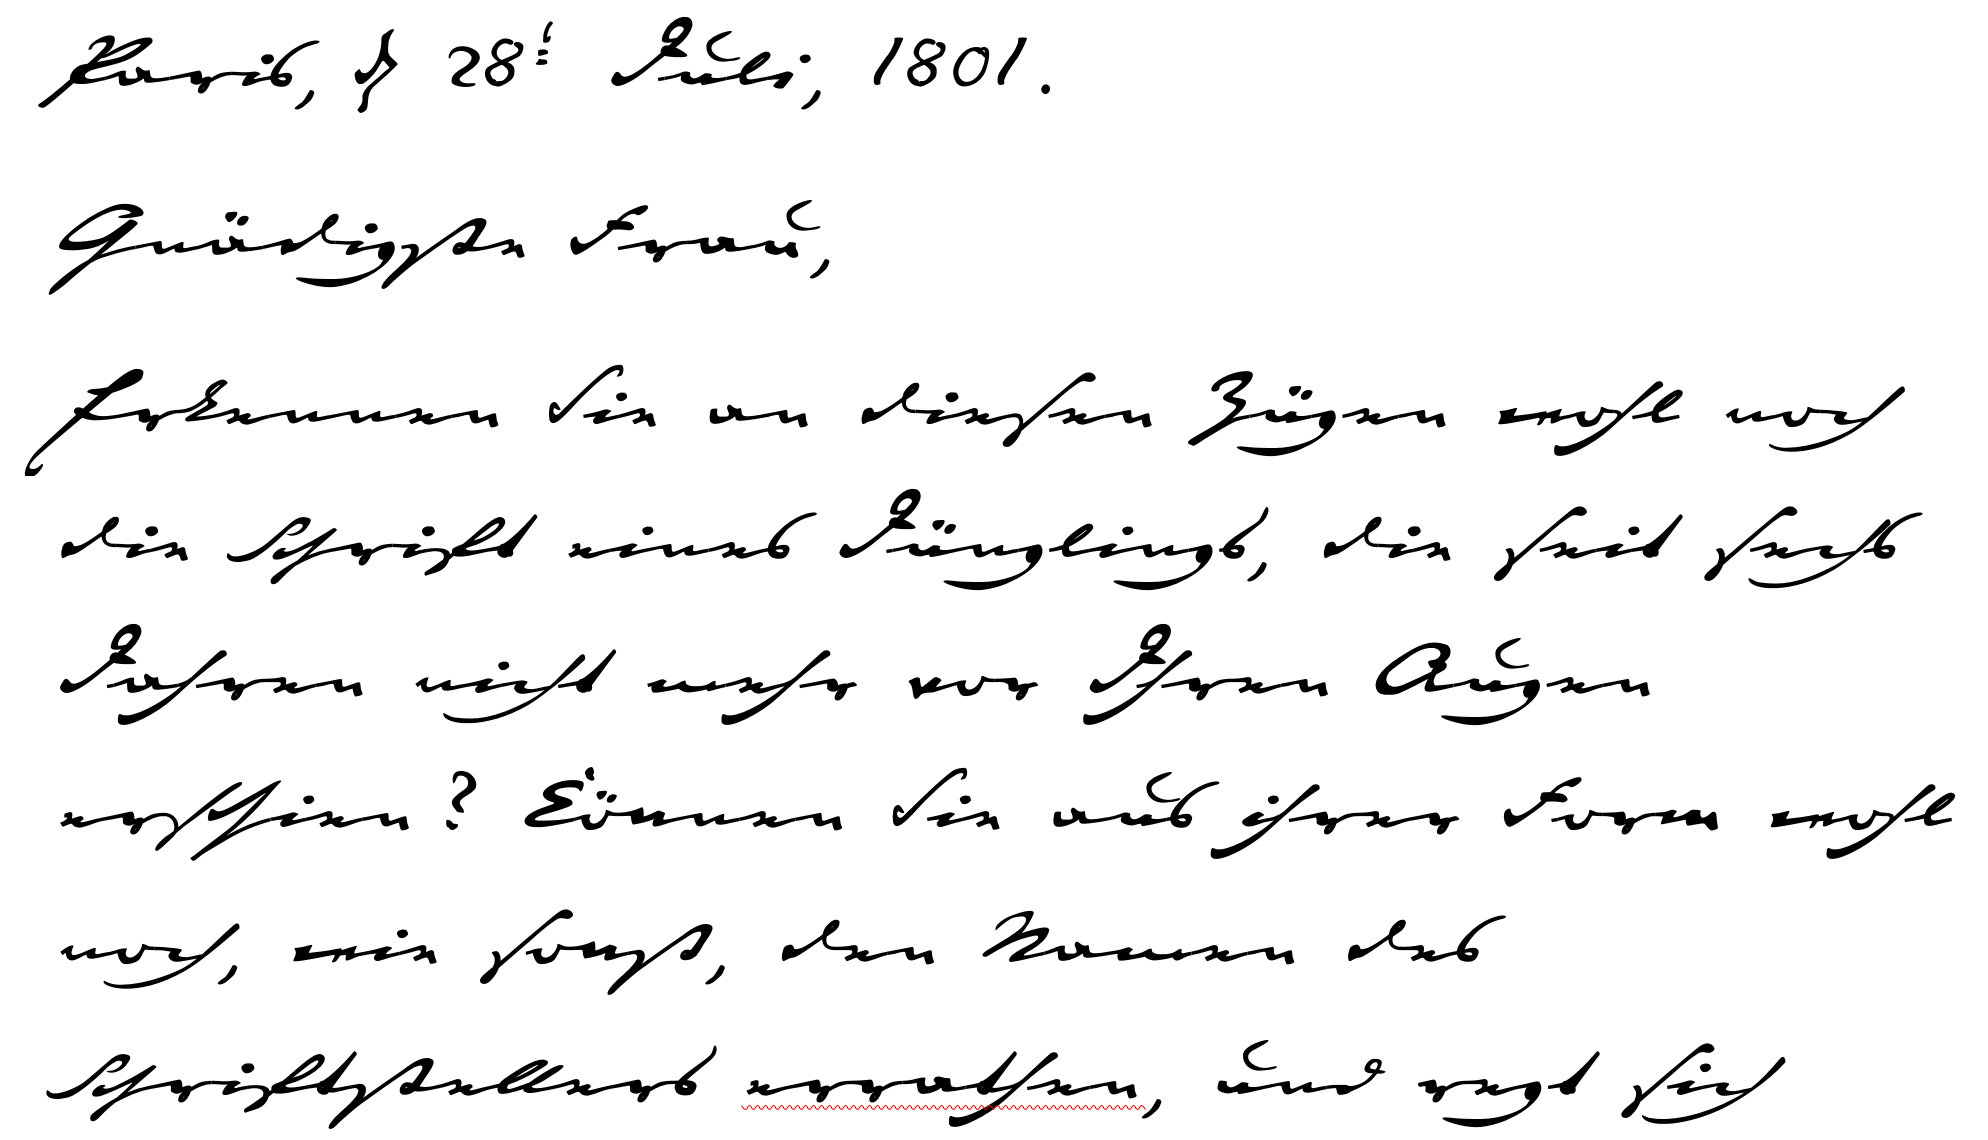 Paris, d 28t Juli, 1801.
Gnädigste Frau,
Erkennen Sie an diesen Zügen wohl noch
die Schrift eines Jünglings, die seit sechs
Jahren nicht mehr vor Ihren Augen
erschien? Können Sie aus ihrer Form wohl
noch, wie sonst, den Namen des
Schriftstellers errathen, und regt sich